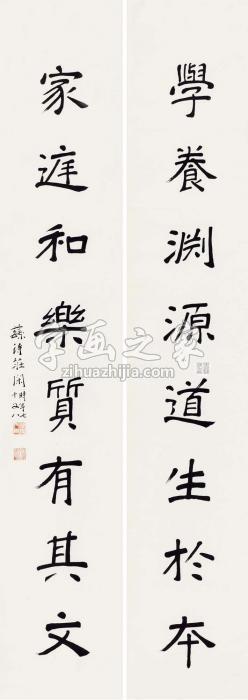 學養淵源道生於本
家庭和樂質有其文
莊閑時年七十又八
字画之家
zihuazhijia.com